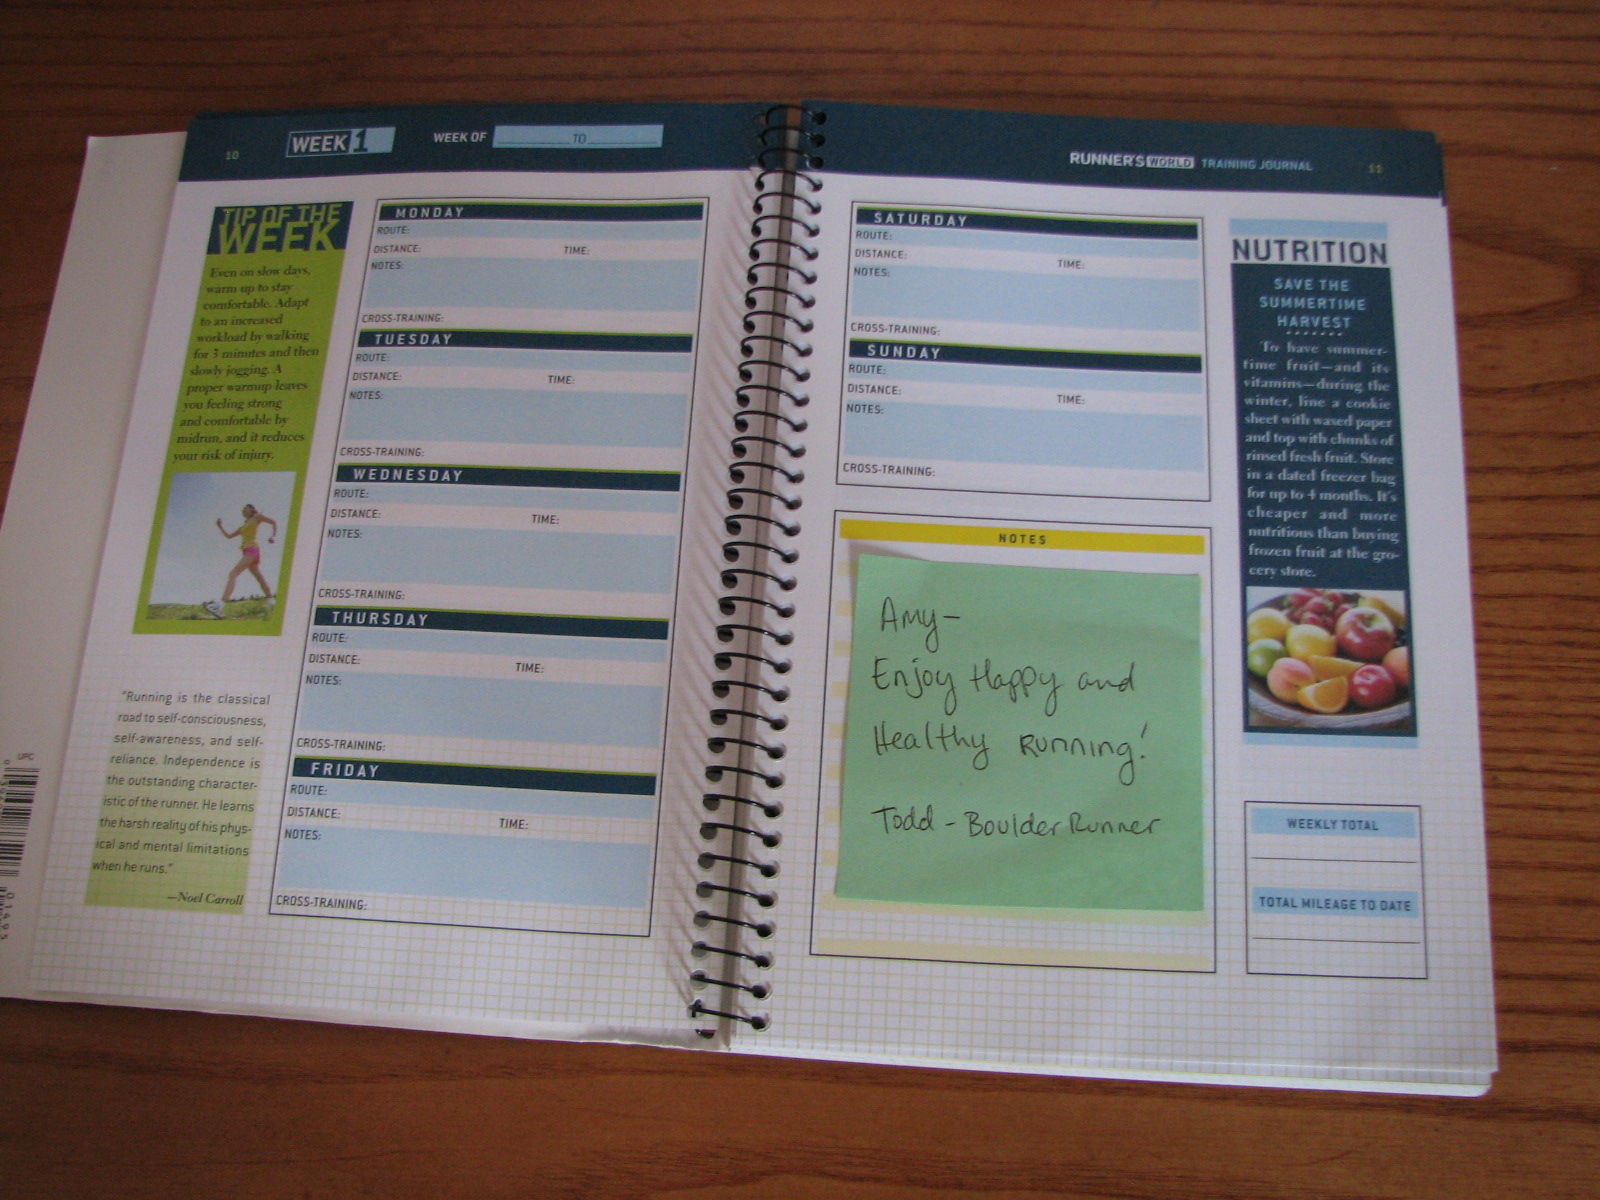 10
WEEK 1
WEEK OF TO
TIP OF THE
WEEK
Even on slow days,
warm up to stay
comfortable. Adapt
to an increased
workload by walking
for 3 minutes and then
slowly jogging. A
proper warmup leaves
you feeling strong
and comfortable by
midrun, and it reduces
your risk of injury.
"Running is the classical
road to self-consciousness,
self-awareness, and self-
reliance. Independence is
the outstanding character-
istic of the runner. He learns
the harsh reality of his phys-
ical and mental limitations
when he runs."
—Noel Carroll
UPC
MONDAY
ROUTE:
DISTANCE: TIME:
NOTES:
CROSS-TRAINING:
TUESDAY
ROUTE:
DISTANCE: TIME:
NOTES:
CROSS-TRAINING:
WEDNESDAY
ROUTE:
DISTANCE: TIME:
NOTES:
CROSS-TRAINING:
THURSDAY
ROUTE:
DISTANCE: TIME:
NOTES:
CROSS-TRAINING:
FRIDAY
ROUTE:
DISTANCE: TIME:
NOTES:
CROSS-TRAINING:
RUNNER'S WORLD TRAINING JOURNAL
11
SATURDAY
ROUTE:
DISTANCE: TIME:
NOTES:
CROSS-TRAINING:
SUNDAY
ROUTE:
DISTANCE: TIME:
NOTES:
CROSS-TRAINING:
NOTES
Amy-
Enjoy Happy and
Healthy Running!
Todd - Boulder Runner
NUTRITION
SAVE THE
SUMMERTIME
HARVEST
To have summer-
time fruit—and its
vitamins—during the
winter, line a cookie
sheet with waxed paper
and top with chunks of
rinsed fresh fruit. Store
in a dated freezer bag
for up to 4 months. It's
cheaper and more
nutritious than buying
frozen fruit at the gro-
cery store.
WEEKLY TOTAL
TOTAL MILEAGE TO DATE